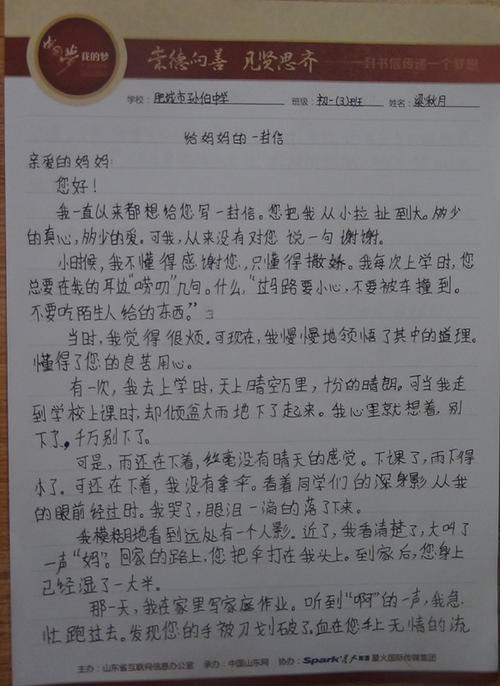 中国梦 我的梦 崇德向善 见贤思齐 一封书信传递一个梦想
学校: 肥城市孙伯中学 班级: 初一(3)班 姓名: 梁秋月
给妈妈的一封信
亲爱的妈妈:
您好!
我一直以来都想给您写一封信。您把我从小拉扯到大。付出多少
的真心,付出多少的爱。可我,从来没有对您说一句谢谢。
小时候,我不懂得感谢您,只懂得撒娇。我每次上学时,您
总要在我的耳边"唠叨"几句。什么,"过马路要小心,不要被车撞到。
不要吃陌生人给的东西。"
当时,我觉得很烦。可现在,我慢慢地领悟了其中的道理。
懂得了您的良苦用心。
有一次,我去上学时,天上晴空万里,十分的晴朗。可当我走
到学校上课时,却倾盆大雨地下了起来。我心里就想着,别
下了,千万别下了。
可是,雨还在下着,丝毫没有晴天的感觉。下课了,雨下得
小了。可还在下着,我没有拿伞。看着同学们的深身影从我
的眼前经过时。我哭了,眼泪一滴的落了下来。
我模模糊地看到远处有一个人影。近了,我看清楚了,大叫了
一声"妈"。回家的路上,您把伞打在我头上。到家后,您身上
已经湿了一大半。
那一天,我在家里写家庭作业。听到"啊"的一声,我急
忙跑过去。发现您的手被刀划破了。血在您手上无情的流
主办:山东省互联网信息办公室 承办:中国山东网 协办:Spark 星火英语 星火国际传媒集团